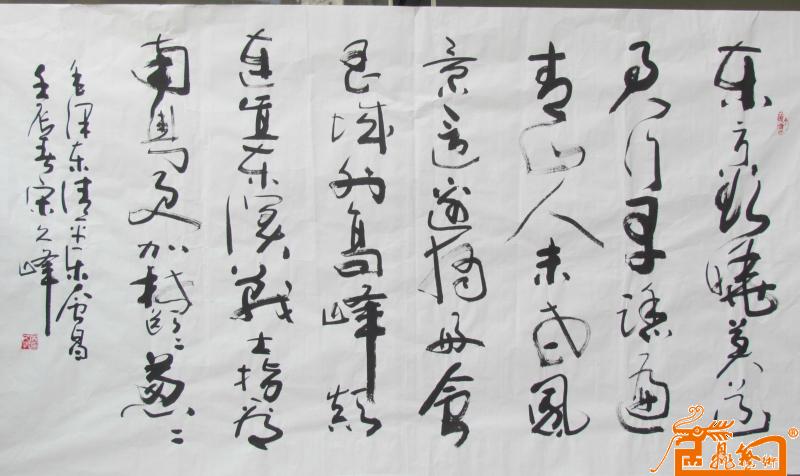 东方欲晓莫道
君行早踏遍
青山人未老风
景这边独好会
昌城外高峰颠
连直接东溟战士指看
南粤更加郁郁葱葱
毛泽东清平乐会昌
壬辰春宋久峰